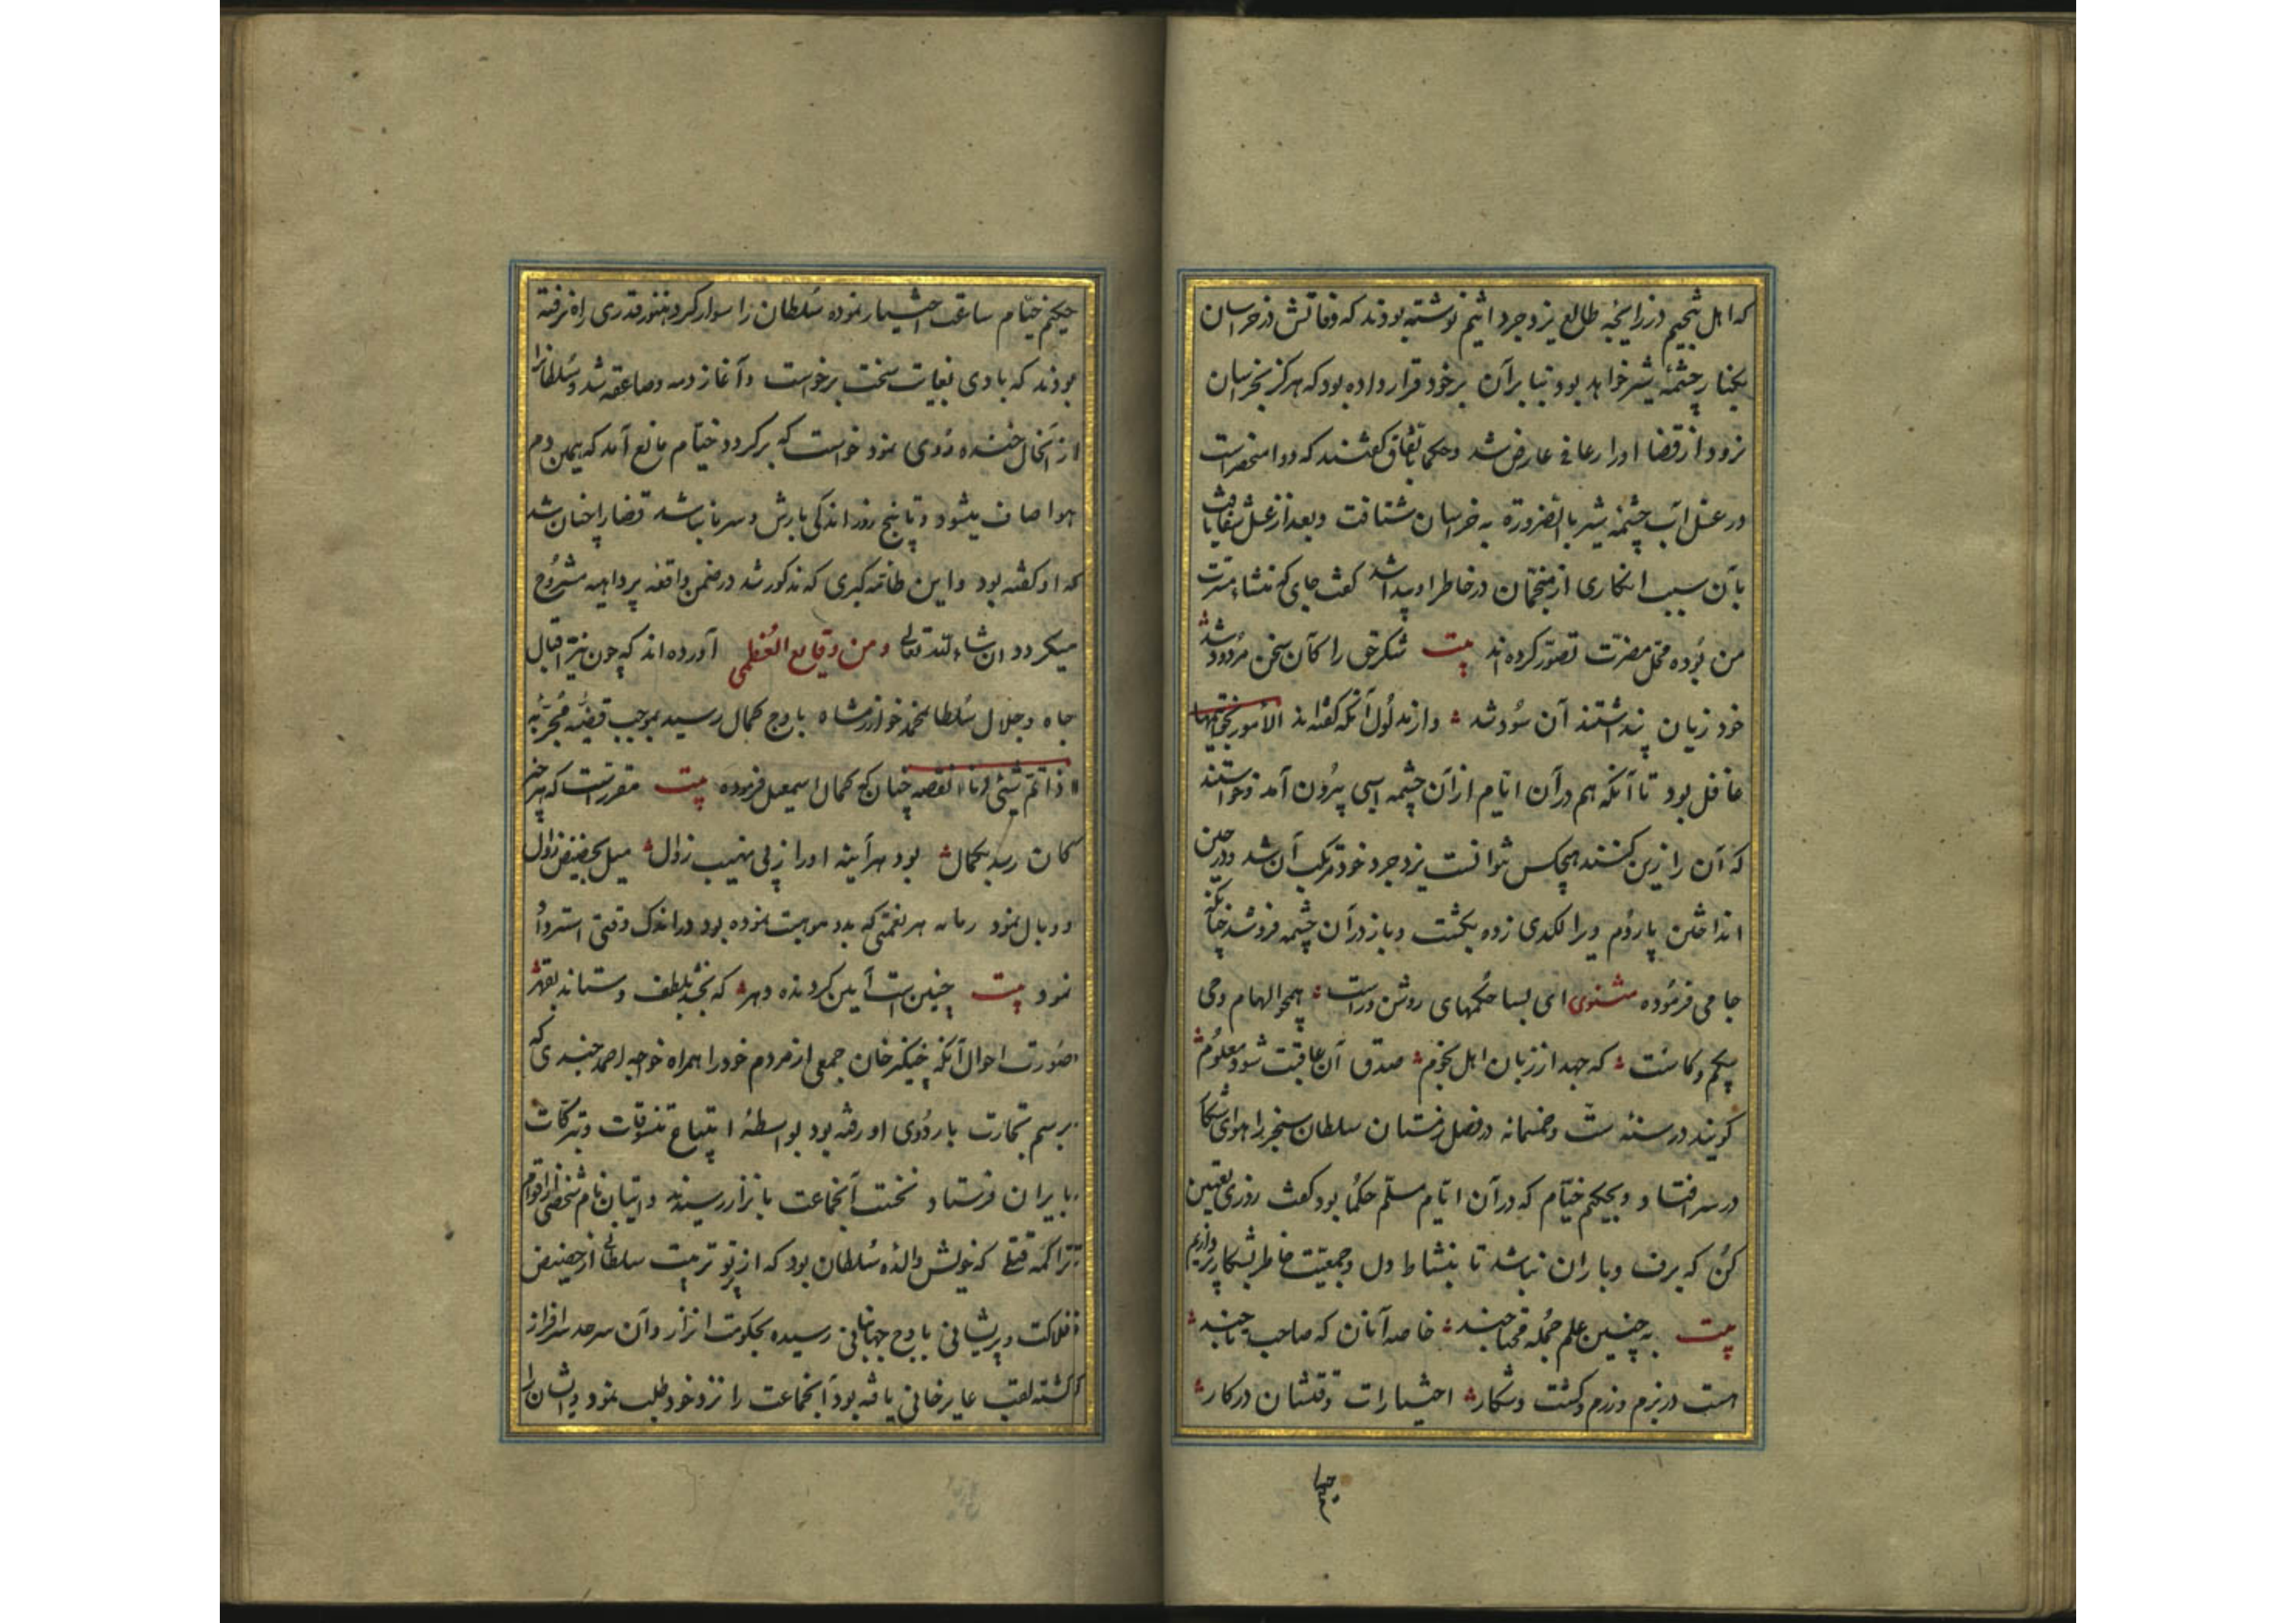 که اهل تنجیم در زایجه طالع یزدجرد اثیم نوشته بودند که وفاتش در خراسان
بکنار چشمهٔ شیر خواهد بود بنابرآن برخود قرار داده بود که هرگز بخراسان
نرود از قضا اورا رعافی عارض شد و حکما باتفاق گفتند که دوا منحصر است
در غسل آب چشمهٔ شیر بالضروره به خراسان شتافت و بعد از غسل شفا یافت
بآن سبب انکاری از منجمان در خاطر او پیدا شد گفت جای که منشاء مسرت
من بوده محل مضرت تصور کرده اند بیت شکر حق را کآن سخن مردود شد
خود زیان پنداشتند آن سود شد و از مدلول آنکه گفته اند الأمور بخواتیمها
غافل بود تا آنکه هم در آن ایام از آن چشمه اسپی بیرون آمد و خواستند
که آن را زین کنند هیچکس نتوانست یزدجرد خود مرتکب آن شد و در حین
انداختن پاردم ویرا لکدی زده بکشت و باز در آن چشمه فرو شد چنانکه
جامی فرموده مثنوی ای بسا حکمهای روشن و راست همچو الهام وحی
بیکم و کاست که جهد از زبان اهل نجوم صدق آن عاقبت شود معلوم
گویند در سنه ست و خمسمائه در فصل زمستان سلطان سنجر را هوای شکار
در سر افتاد و بحکیم خیام که در آن ایام مسلم حکما بود گفت روزی تعیین
کن که برف و باران نباشد تا بنشاط دل و جمعیت خاطر بشکار پردازیم
بیت به چنین علم جمله محتاجند خاصه آنان که صاحب تاجند
هست در بزم و رزم و گشت و شکار اختیارات وقتشان در کار
حکیم
حکیم خیام ساعت اختیار نموده سلطان را سوار کرد هنوز قدری راه نرفته
بودند که بادی بغایت سخت برخواست و آغاز دمه و صاعقه شد و سلطانرا
از آنحال خنده روی نمود خواست که برگردد خیام مانع آمد که همین دم
هوا صاف میشود و تا پنج روز اندکی بارش و سرما نباشد قضا را چنان شد
که او گفته بود و این طامه کبری که مذکور شد در ضمن واقعه پرداهیه مشروح
میگردد ان شاء الله تعالی و من وقایع العظمی آورده اند که چون نیر اقبال
جاه و جلال سلطان محمد خوارزمشاه باوج کمال رسید بموجب قضیهٔ مجربه
اذا تم شیئی دنا نقصه چنان که کمال اسمعیل فرموده بیت مقررست که هر چیز
کان رسد بکمال بود هر آینه اورا ز پی نهیب زوال میل بحضیض زوال
و وبال نمود زمانه هر نعمتی که بدو موهبت نموده بود در اندک وقتی استرداد
نمود بیت چنین است آیین گردنده دهر که بخشد بلطف و ستاند بقهر
صورت احوال آنکه چنگیز خان جمعی از مردم خود را همراه خواجه احمد خجندی که
برسم تجارت باردوی او رفته بود بواسطهٔ ابتیاع تنسوقات و تبرکات
بایران فرستاد نخست آنجماعت باترار رسیدند و اینال نام شخصی از اقوام
تراکمه قنقلی که خویش والدهٔ سلطان بود که از پرتو تربیت سلطانی از حضیض
فلاکت و پریشانی باوج جهانبانی رسیده بحکومت اترار و آن سرحد سرافراز
گشته لقب غایرخانی یافته بود آنجماعت را نزد خود طلب نمود و ایشان را